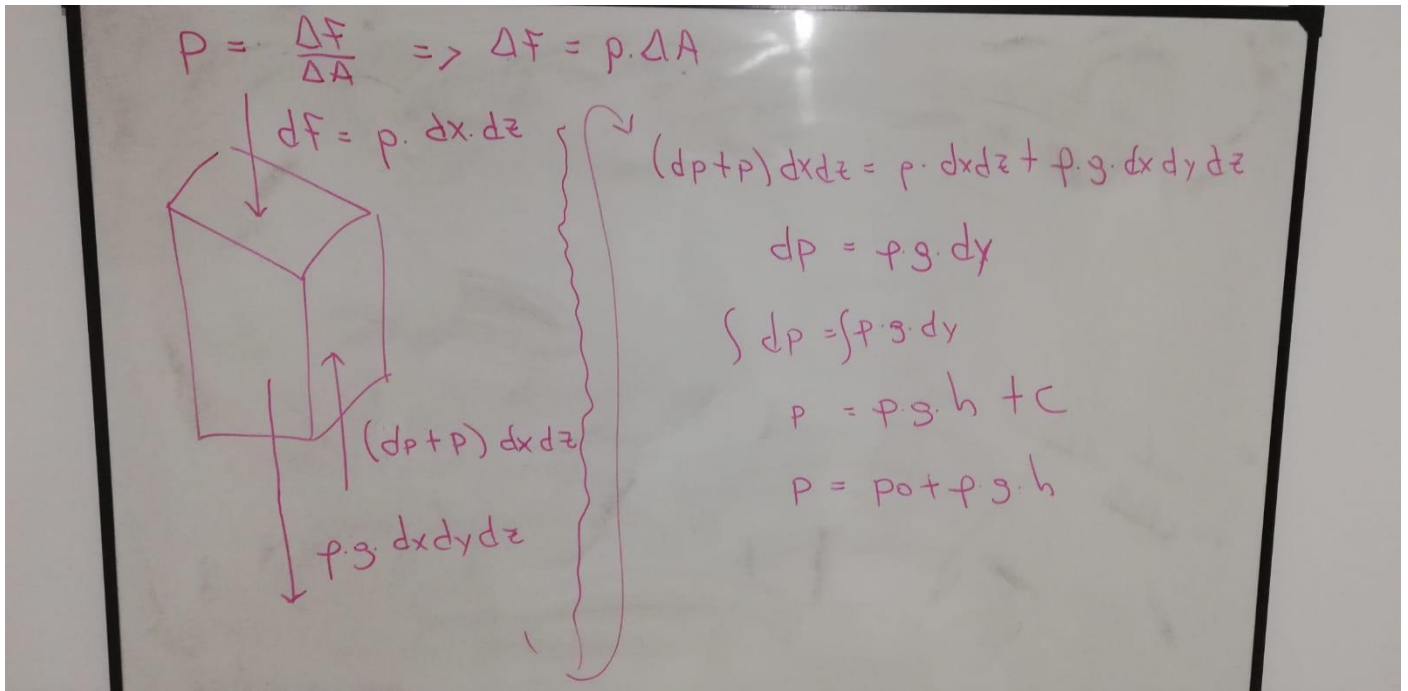 P = ΔF/ΔA => ΔF = p.ΔA
dF = p. dx.dz
(dp+p) dxdz
ρ.g. dxdydz
(dp+p) dxdz = p. dxdz + ρ.g. dx dy dz
dp = ρ.g. dy
∫ dp = ∫ρ.g. dy
p = ρ.g. h + c
p = po + ρ.g. h